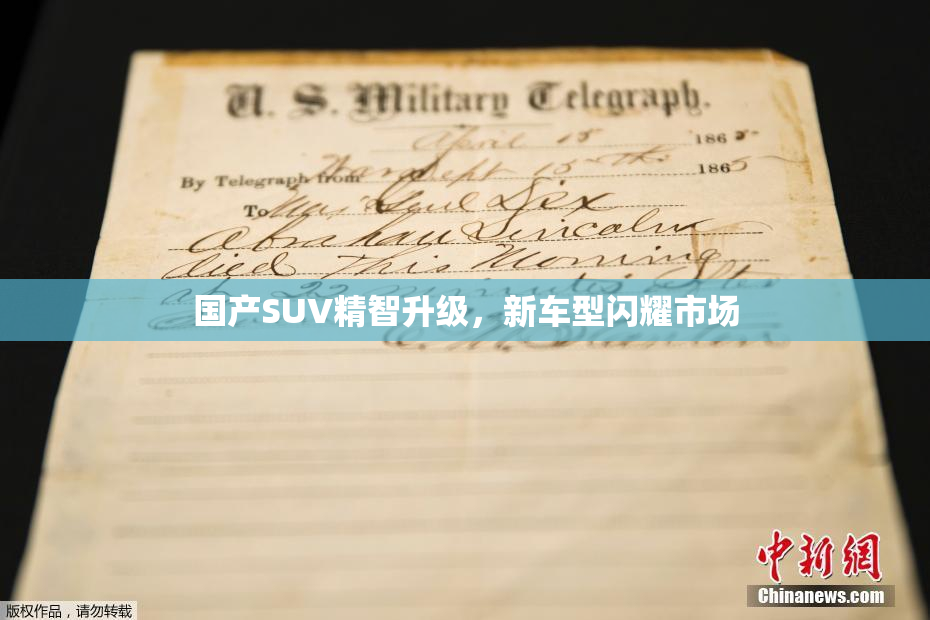 U. S. Military Telegraph.
April 15 1865
By Telegraph from War Dept 15th 1865
To Maj Genl Dix
Abraham Lincoln
died This Morning
at 22 minutes after
国产SUV精智升级，新车型闪耀市场
E. M. Stanton
中新网
Chinanews.com
版权作品，请勿转载